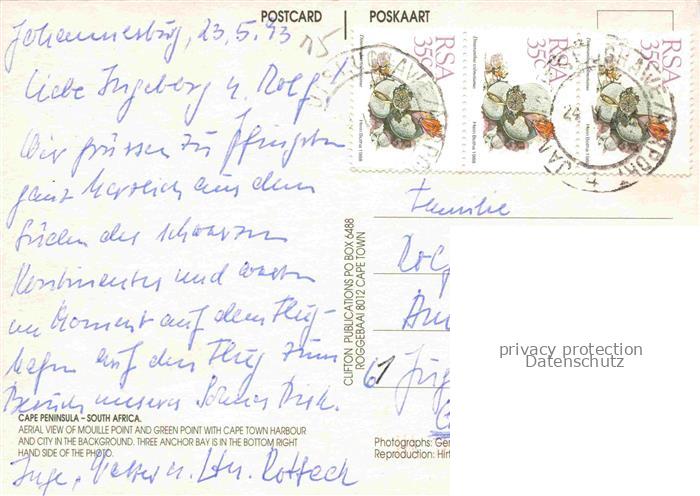 POSTCARD POSKAART
Johannesburg, 23.5.93
Liebe Ingeborg u. Rolf!
Wir grüssen zu Pfingsten
ganz herzlich aus dem
Süden des schwarzen
Kontinentes und warten
im Moment auf dem Flug-
hafen auf den Flug zum
Besuch unseres Sohnes Dirk.
Inge, u.
RSA 35c
RSA 35c
RSA 35c
Familie
Rolf
61
CLIFTON PUBLICATIONS PO BOX 6488
ROGGEBAAI 8012 CAPE TOWN
privacy protection
Datenschutz
CAPE PENINSULA – SOUTH AFRICA.
AERIAL VIEW OF MOUILLE POINT AND GREEN POINT WITH CAPE TOWN HARBOUR
AND CITY IN THE BACKGROUND. THREE ANCHOR BAY IS IN THE BOTTOM RIGHT
HAND SIDE OF THE PHOTO.
Photographs:
Reproduction: